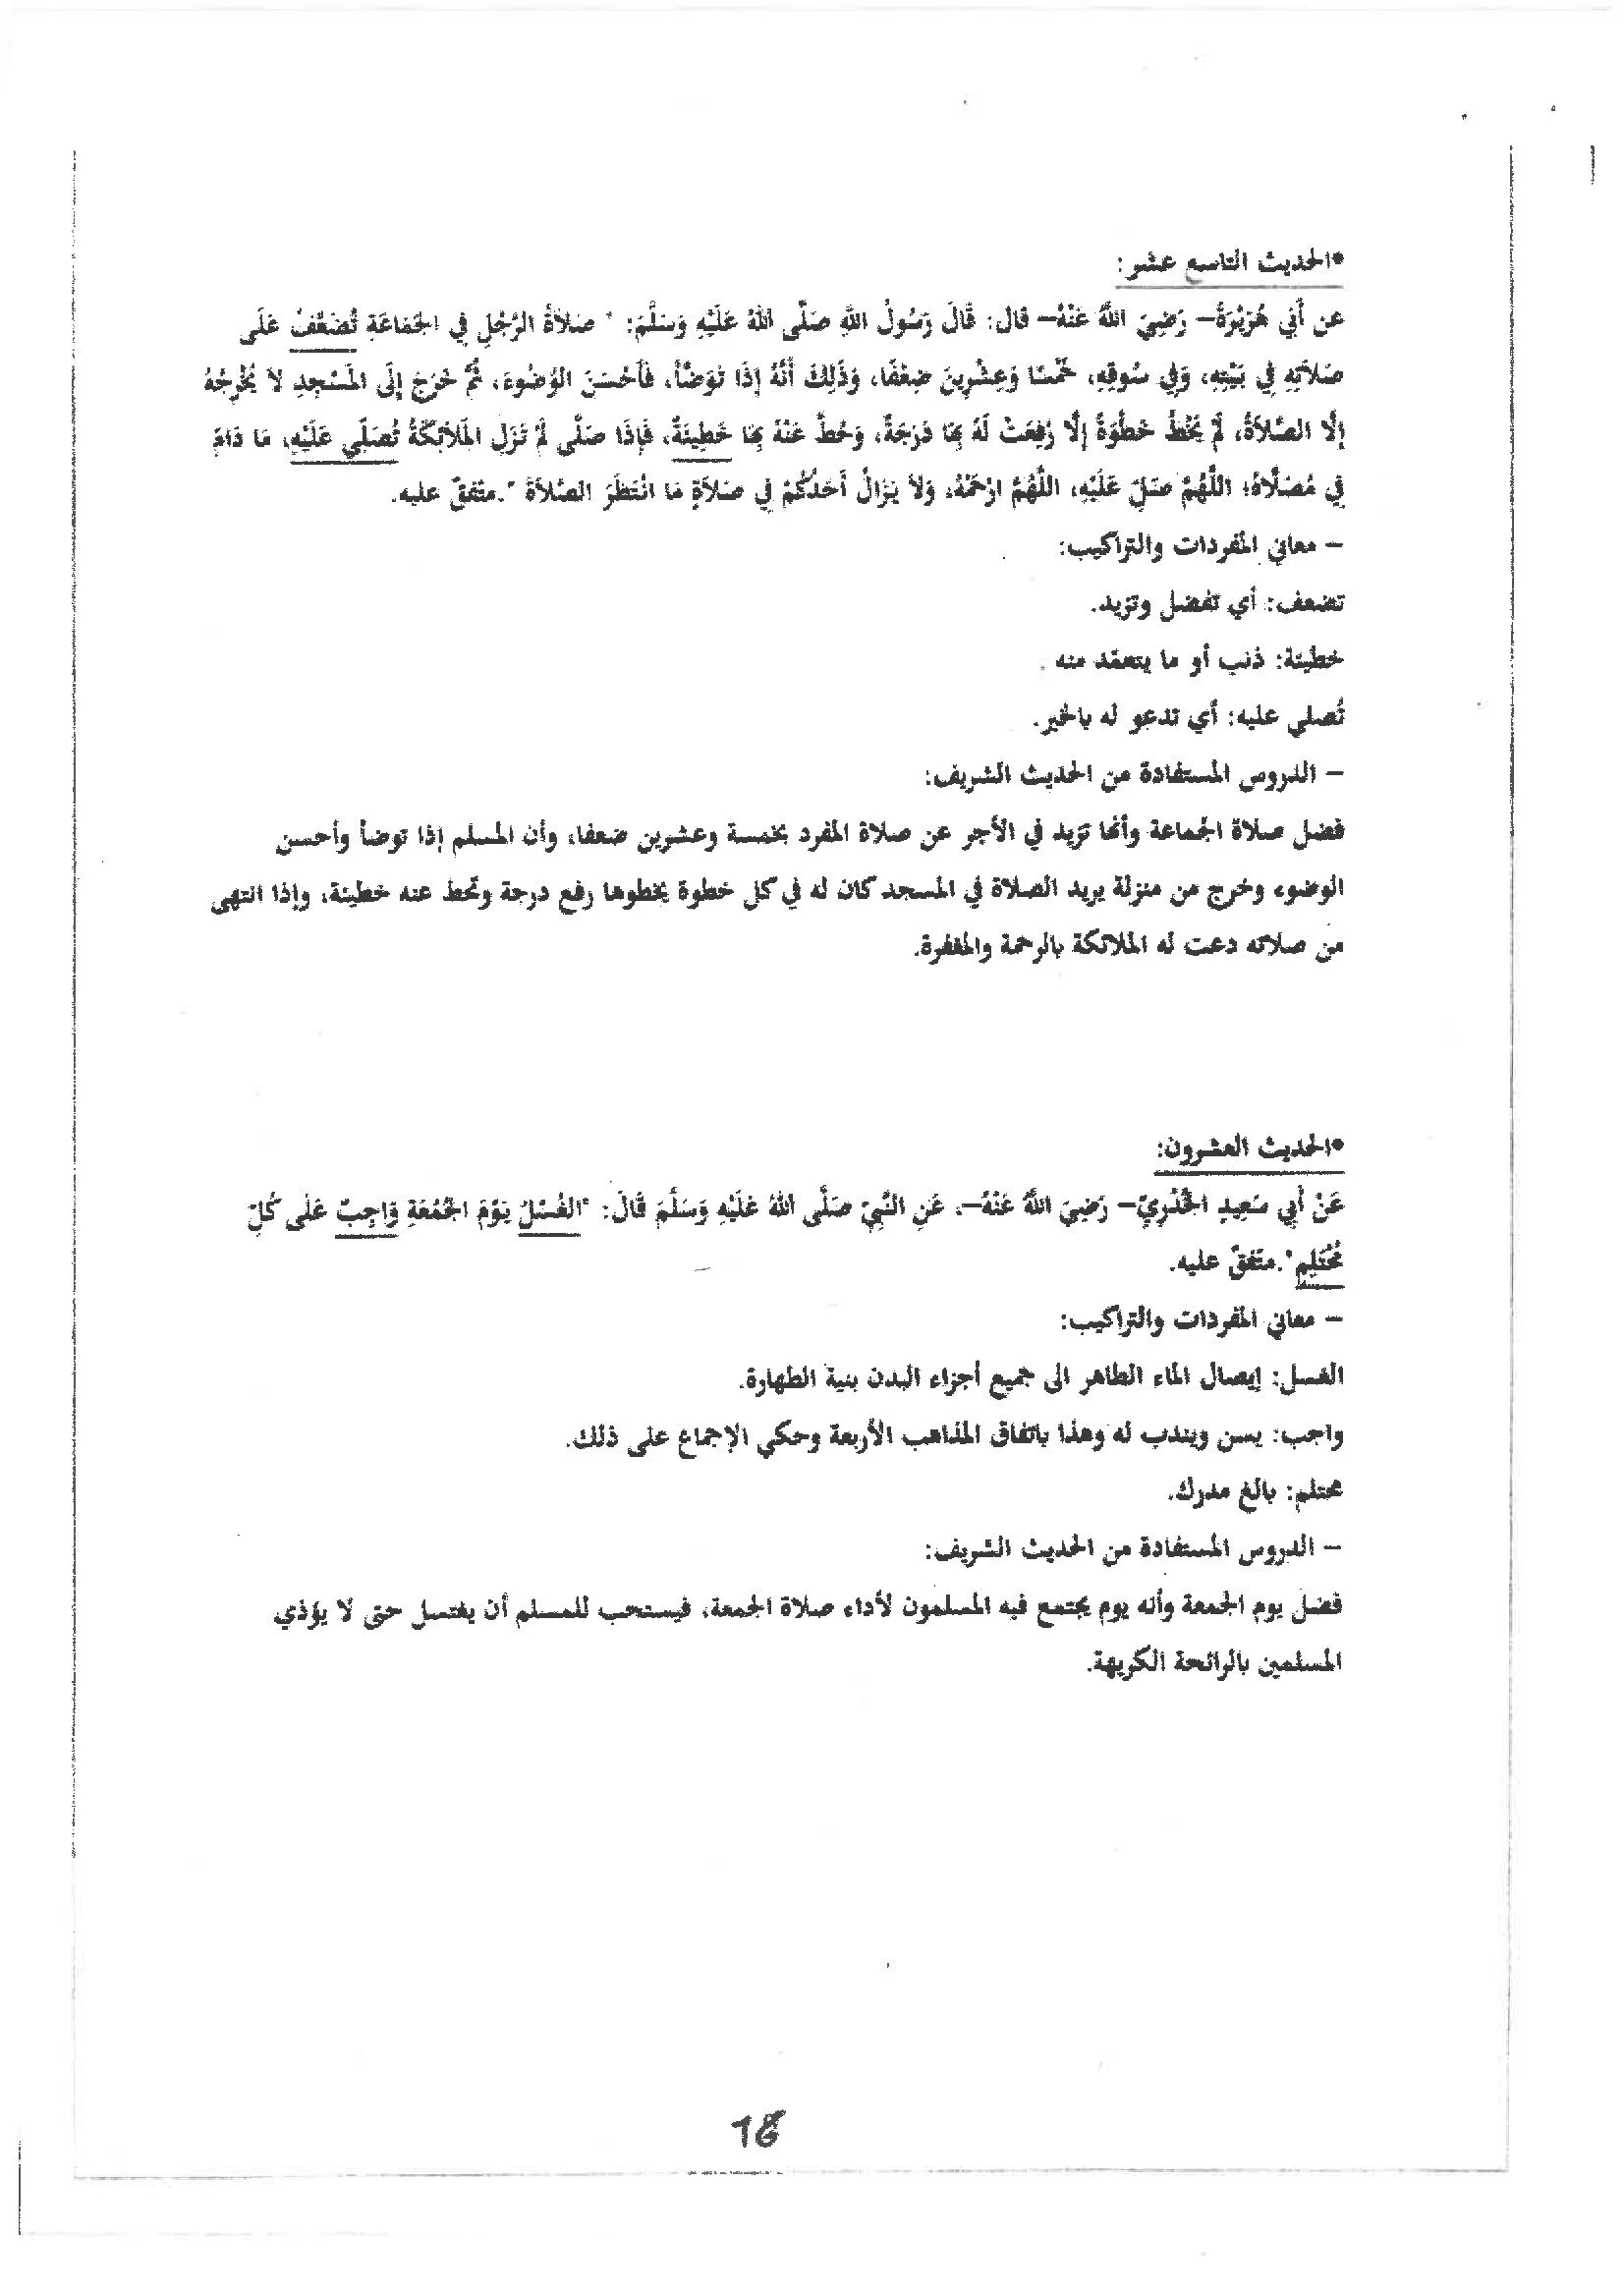 *الحديث التاسع عشر:
عن أَبي هُرَيْرَةَ– رَضِيَ اللَّهُ عَنْهُ– قال: قَالَ رَسُولُ اللَّهِ صَلَّى اللَّهُ عَلَيْهِ وَسَلَّمَ: " صَلاَةُ الرَّجُلِ فِي الجَمَاعَةِ تُضَعَّفُ عَلَى
صَلاَتِهِ فِي بَيْتِهِ، وَفِي سُوقِهِ، خَمْسًا وَعِشْرِينَ ضِعْفًا، وَذَلِكَ أَنَّهُ إِذَا تَوَضَّأَ، فَأَحْسَنَ الوُضُوءَ، ثُمَّ خَرَجَ إِلَى المَسْجِدِ لاَ يُخْرِجُهُ
إِلَّا الصَّلاَةُ، لَمْ يَخْطُ خَطْوَةً إِلَّا رُفِعَتْ لَهُ بِهَا دَرَجَةٌ، وَحُطَّ عَنْهُ بِهَا خَطِيئَةٌ، فَإِذَا صَلَّى لَمْ تَزَلِ المَلاَئِكَةُ تُصَلِّي عَلَيْهِ، مَا دَامَ
فِي مُصَلَّاهُ: اللَّهُمَّ صَلِّ عَلَيْهِ، اللَّهُمَّ ارْحَمْهُ، وَلاَ يَزَالُ أَحَدُكُمْ فِي صَلاَةٍ مَا انْتَظَرَ الصَّلاَةَ ".متّفقٌ عليه.
– معاني المفردات والتراكيب:
تضعف: أي تفضل وتزيد.
خطيئة: ذنب أو ما يتعمّد منه .
تُصلي عليه: أي تدعو له بالخير.
– الدروس المستفادة من الحديث الشريف:
فضل صلاة الجماعة وأنها تزيد في الأجر عن صلاة المفرد بخمسة وعشرين ضعفا، وأن المسلم إذا توضأ وأحسن
الوضوء وخرج من منزلة يريد الصلاة في المسجد كان له في كل خطوة يخطوها رفع درجة وتحط عنه خطيئة، وإذا انتهى
من صلاته دعت له الملائكة بالرحمة والمغفرة.
*الحديث العشرون:
عَنْ أَبِي سَعِيدٍ الخُدْرِيِّ– رَضِيَ اللَّهُ عَنْهُ–، عَنِ النَّبِيِّ صَلَّى اللهُ عَلَيْهِ وَسَلَّمَ قَالَ: "الغُسْلُ يَوْمَ الجُمُعَةِ وَاجِبٌ عَلَى كُلِّ
مُحْتَلِمٍ".متّفقٌ عليه.
– معاني المفردات والتراكيب:
الغسل: إيصال الماء الطاهر الى جميع أجزاء البدن بنية الطهارة.
واجب: يسن ويندب له وهذا باتفاق المذاهب الأربعة وحكي الإجماع على ذلك.
محتلم: بالغ مدرك.
– الدروس المستفادة من الحديث الشريف:
فضل يوم الجمعة وأنه يوم يجتمع فيه المسلمون لأداء صلاة الجمعة، فيستحب للمسلم أن يغتسل حتى لا يؤذي
المسلمين بالرائحة الكريهة.